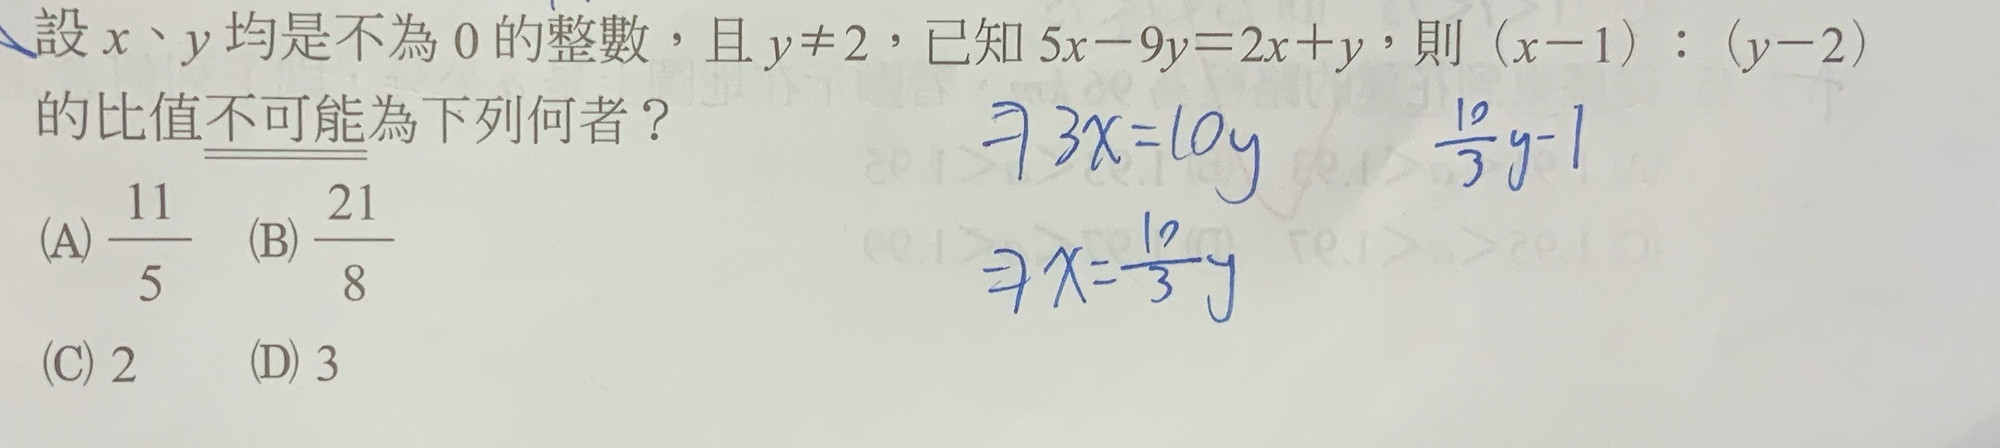 設 x、y 均是不為 0 的整數，且 y≠2，已知 5x－9y＝2x＋y，則（x－1）:（y－2）
的比值不可能為下列何者？
⇒3x=10y
10/3 y-1
⇒x=10/3 y
(A) 11/5 (B) 21/8
(C) 2 (D) 3